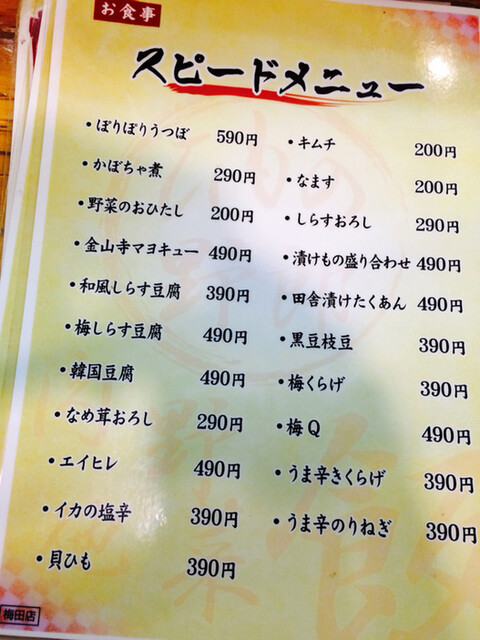 お食事
スピードメニュー
・ぽりぽりうつぼ 590円
・かぼちゃ煮 290円
・野菜のおひたし 200円
・金山寺マヨキュー 490円
・和風しらす豆腐 390円
・梅しらす豆腐 490円
・韓国豆腐 490円
・なめ茸おろし 290円
・エイヒレ 490円
・イカの塩辛 390円
・貝ひも 390円
・キムチ 200円
・なます 200円
・しらすおろし 290円
・漬けもの盛り合わせ 490円
・田舎漬けたくあん 490円
・黒豆枝豆 390円
・梅くらげ 390円
・梅Q 490円
・うま辛きくらげ 390円
・うま辛のりねぎ 390円
梅田店